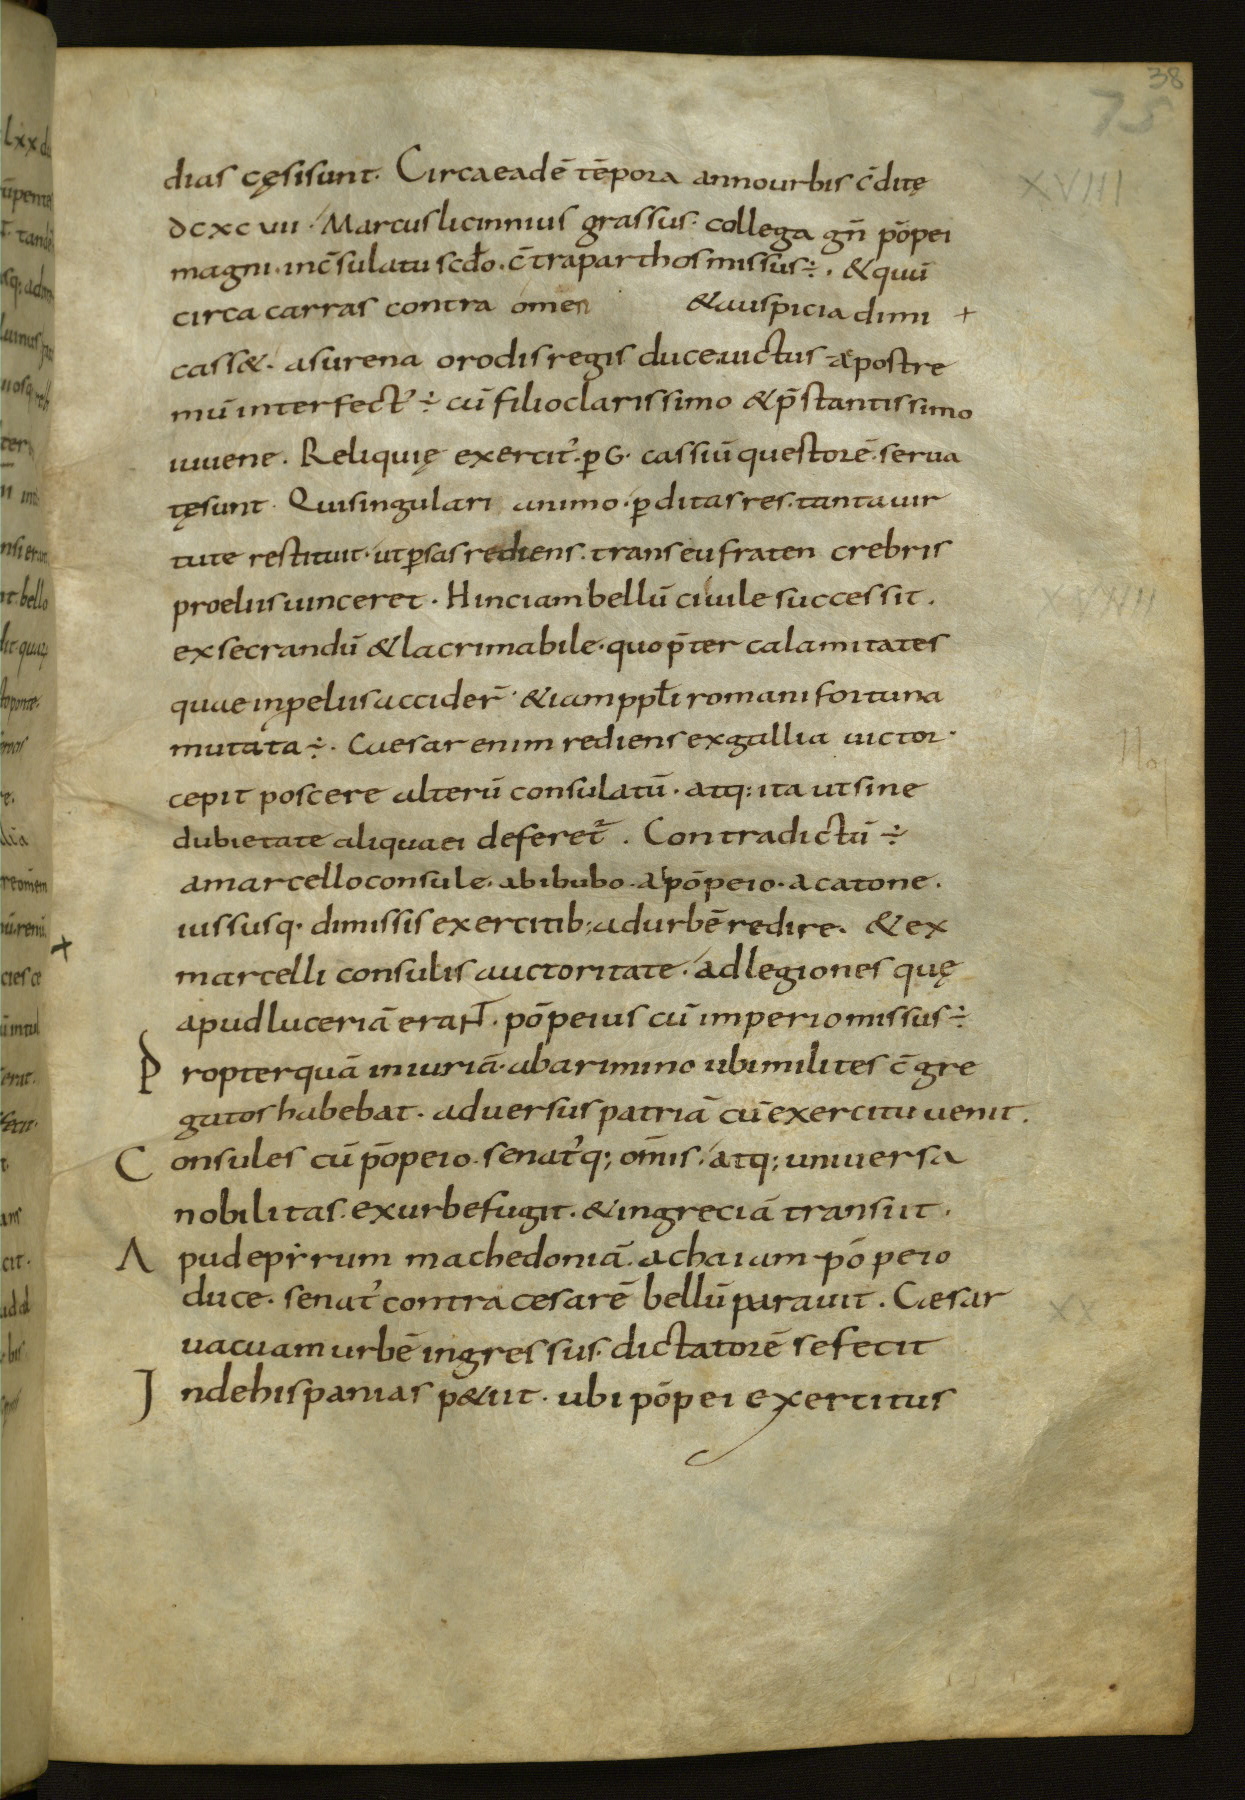 38
75
dias cęsisunt. Circaeadē tēpora annourbis c̄ditę
XVIII
dcxcvii. Marcuslicinnius grassus. collega gn̄ pōpei
magni. inc̄sulatu scdo. c̄traparthosmissus÷. &quū
circa carras contra omen &auspicia dimi +
cass&. asurena orodisregis duce.uictus apostre
mū interfect᾽÷ cū filioclarissimo &p̄stantissimo
iuuene. Reliquię exercit᾽. ꝑ G. cassiū questorē.serua
tęsunt. Quisingulari animo. ꝑditasres.tantauir
tute restituit. utꝑsasrediens. transeufraten crebris
proeliisuinceret. Hinciambellū ciuile successit.
exsecrandū &lacrimabile. quop̄ter calamitates
quae inpeliisaccider̄. &iamppłi romanifortuna
mutata÷. Caesar enim rediensexgallia uictor.
cepit poscere alterū consulatū. atq: ita utsine
dubietate aliquaei deferet᷑. Contradictū ÷
amarcelloconsule. abibubo. apōpeio. acatone.
iussusq. dimissis exercitib; adurbē redire. &ex
marcelli consulis auctoritate. adlegiones quę
apudluceriā erant. pōpeius cū imperiomissus÷
Propterquā iniuriā. abarimino ubimilites c̄gre
gatoshabebat. aduersuspatriā cūexercitu uenit.
Consules cū pōpeio. senat᾽q; om̄is. atq; uniuersa
nobilitas. exurbefugit. &ingreciā transiit.
Apudepẏrrum machedoniā. achaiam. pōpeio
duce. senat᾽ contracesarē bellū parauit. Cæsar
XX
uacuamurbē ingressus. dictatorē sefecit
Indehispanias p&iit. ubi pōpei exercitus